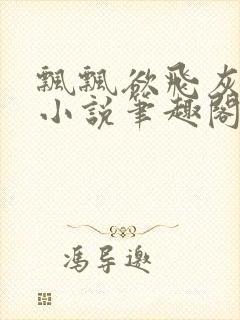 飘飘欲飞灰
小说笔趣阁
冯导邀